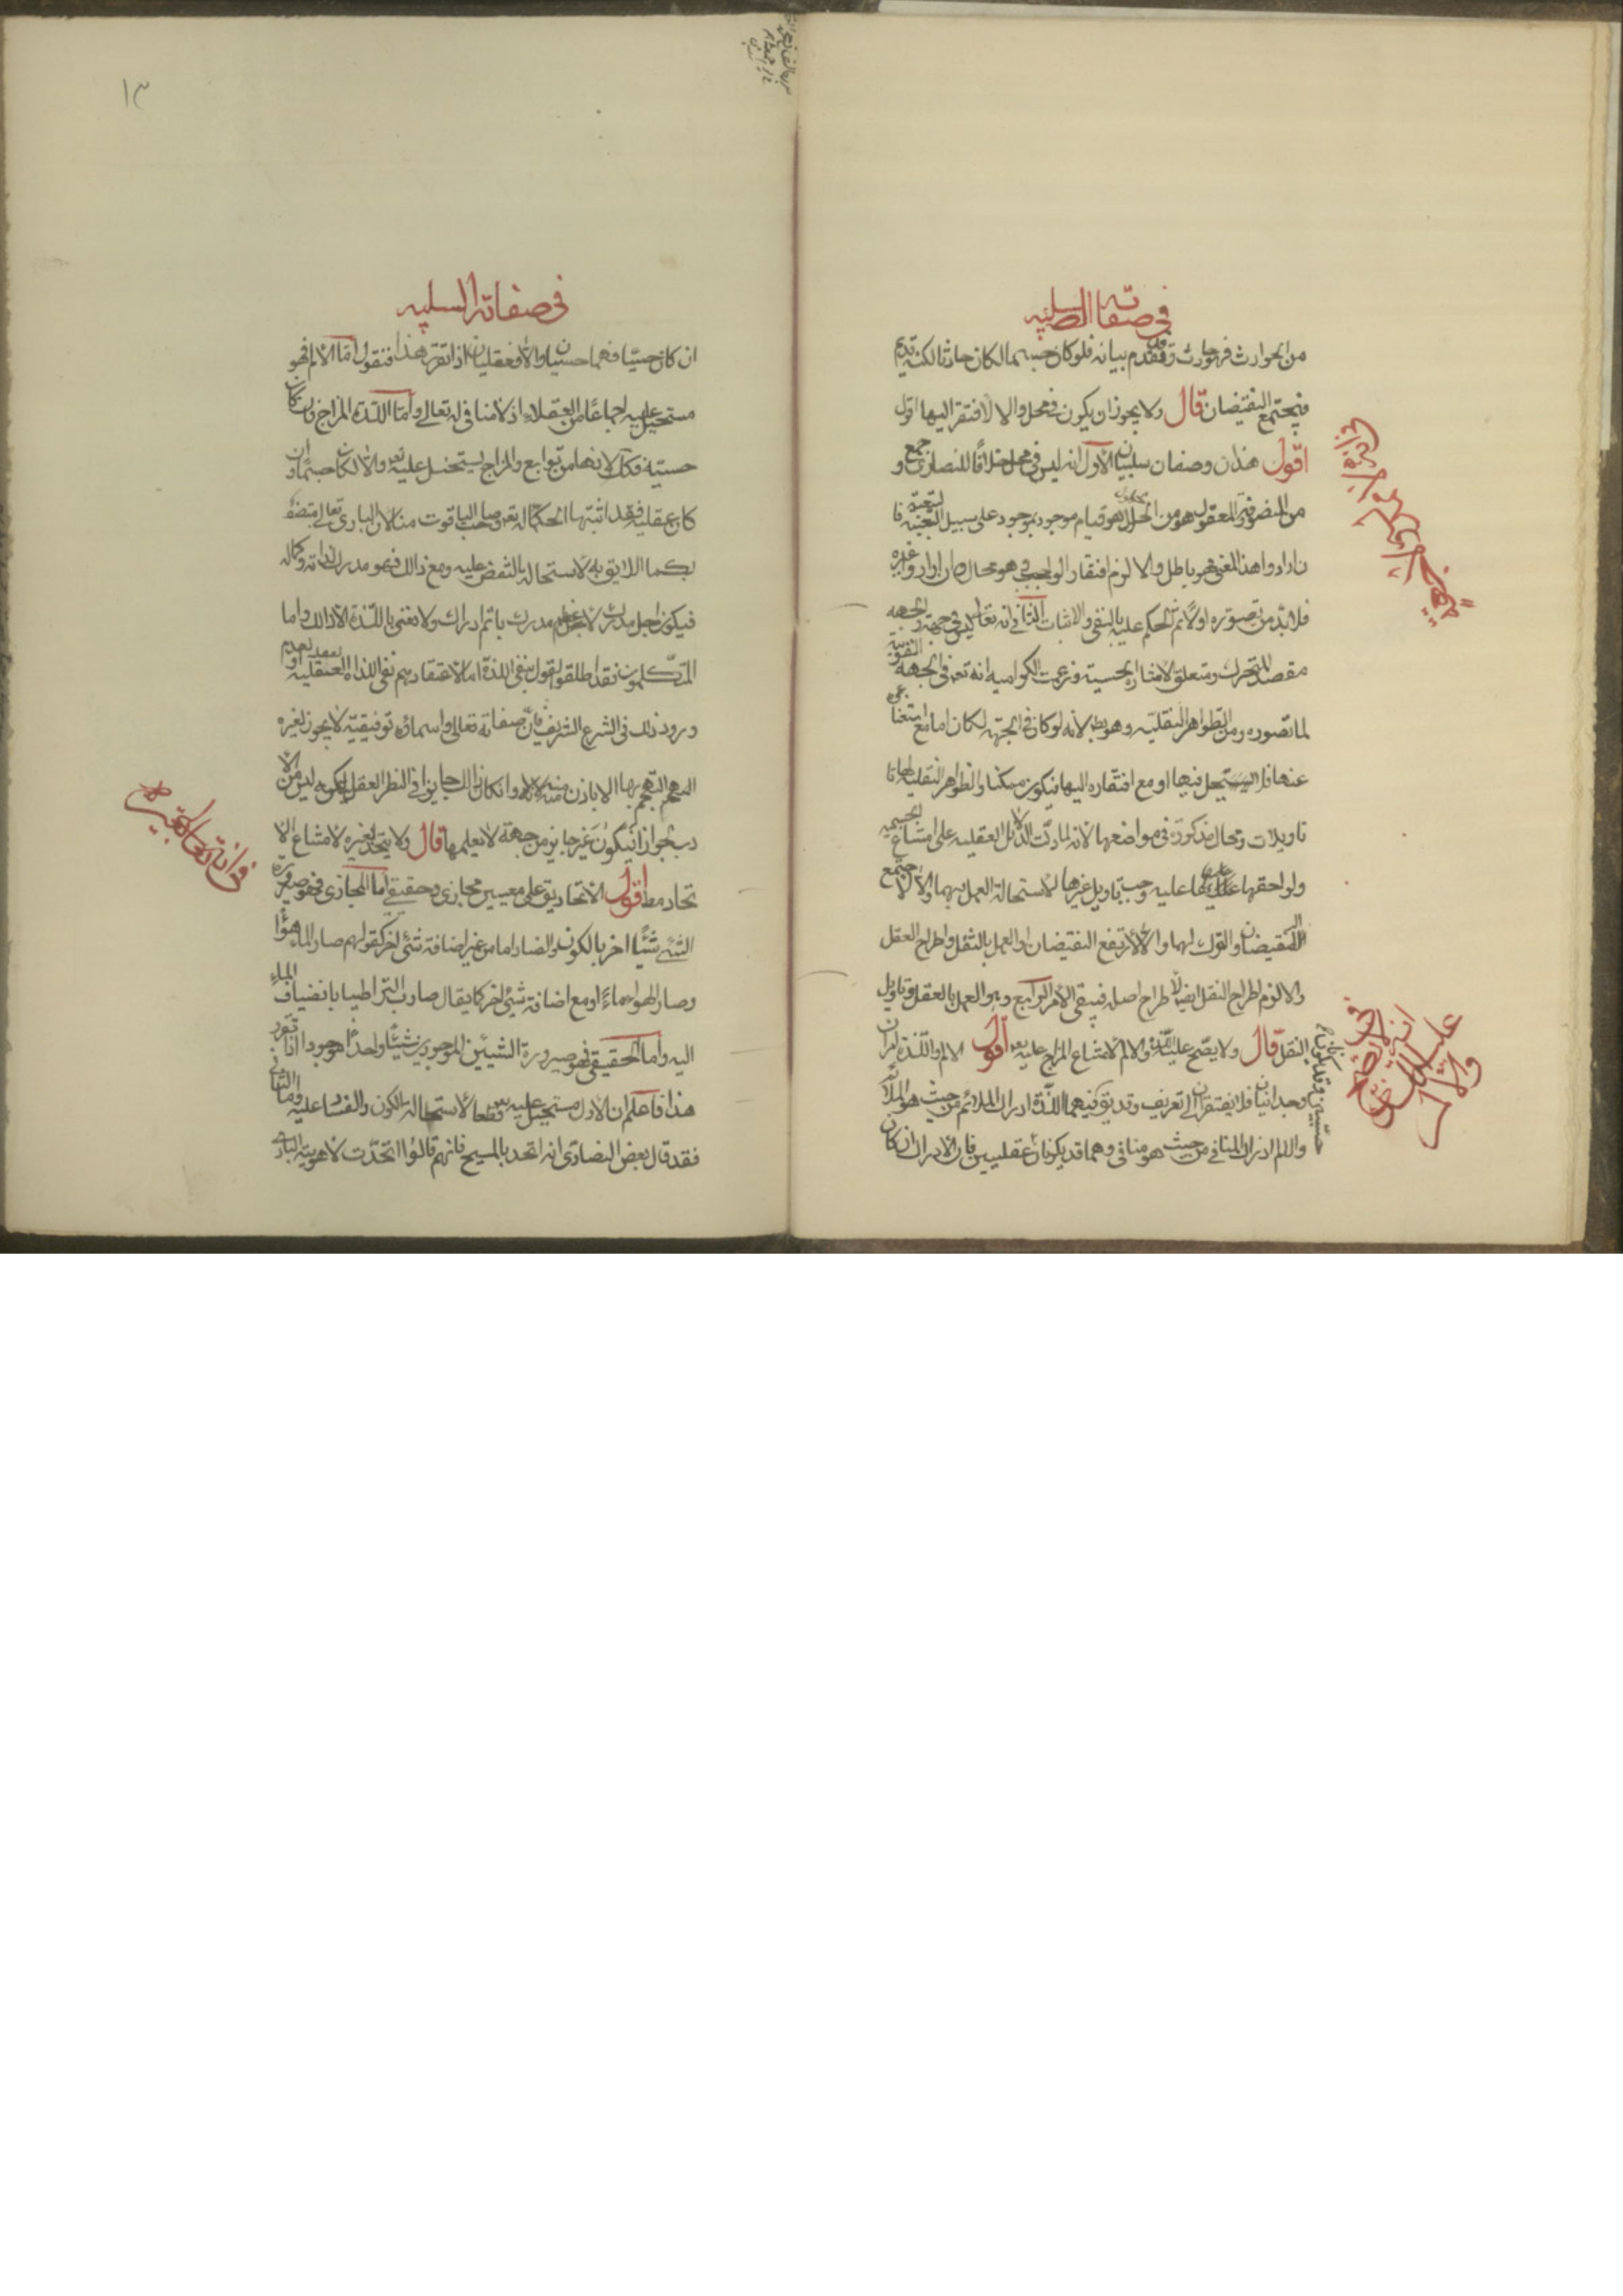 في صفاته السلبيه
من الحوادث فهو حادث وقد تقدم بيانه فلو كان جسما لكان حادثا لكنه قديم
فيجتمع النقيضان قال ولا يجوز ان يكون في محل والا لافتقر اليها اقول
اقول هذان وصفان سلبيان الأول انه ليس في محل خلافًا للنصارى و جمع
من المتصوفة والمعقول هو من الحلول هو قيام موجود بموجود على سبيل التبعية فا
ن ارادوا هذا المعنى فهو باطل والا لزم افتقار الواجب وهو محال وان ارادوا غيره
فلا بد من تصوره اولًا ثم الحكم عليه بالنفي والاثبات الثاني انه تعالى ليس في جهة والجهه
مقصد المتحرك ومتعلق الاشارة الحسية وزعمت الكراميه انه تعه في الجهة الفوقية
لما تصوره ومن الظواهر النقليه وهو بط لانه لو كان في الجهة لكان اما مع استغنا
عنها فلا يحل فيها او مع افتقاره اليها فيكون ممكنا والظواهر النقليه لها تا
تاويلات ومحال مذكورة في مواضعها لانه لما دلت الدلائل العقليه على امتناع الجسميه
ولواحقها عليه وجب تاويل غيرها لاستحالة العمل بهما والا لاجتمع
النقيضان والترك لهما والا لارتفع النقيضان او العمل بالنقل واطراح العقل
والا لزم اطراح النقل ايضا لاطراح اصله فيبقى الأمر الرابع وهو العمل بالعقل وتاويل
النقل قال ولا يصح عليه اللذة والالم لامتناع المزاج عليه تعه اقول الالم واللذة امران
وجدانيان فلا يفتقران الى تعريف وقد يق فيهما اللذة ادراك الملائم من حيث هو الملائم
والالم ادراك المنافي من حيث هو منافي وهما قد يكونان عقليين فان الادراك ان كان
حسيين وقد يكونان
في انه لا يصح
عليه اللذة
والالم
في صفاته السلبيه
ان كان حسيًا فهما حسيان والا فعقليان اذا تقرر هذا فنقول امّا الألم فهو
مستحيل عليه اجماعًا من العقلاء اذ لا منافي له تعالى وأمّا اللذة المزاج وان كان
حسية فكك لانها من توابع والمزاج يستحيل عليه تعه والا لكان جسمًا وان
كان عقليه فقد اثبتها الحكماء له تعه وصاحب الياقوت منا لان الباري تعالى متصف
بكماله اللايق به لاستحالة النقص عليه ومع ذالك فهو مدرك لذاته وكماله
فيكون اجل مدرك لاعظم مدرك باتم ادراك ولا نعني باللذة الا ذالك واما
المتكلمون فقد اطلقوا القول بنفي اللذة اما لاعتقادهم نفي اللذة العقليه او لعدم
ورود ذلك في الشرع الشريف فان صفاته تعالى واسماؤه توقيفيّة لا يجوز لغيره
التهجم بها الا باذن منه لانه وان كان ذالك جايزا في النظر العقل لكنه ليس من الا
دب لجواز ان يكون غير جايز من جهة لا نعلمها قال ولا يتحد بغيره لامتناع الا
تحاد مط اقول الاتحاد يق على معنيين مجازي وحقيقي اما المجازي فهو صيرورة
الشيء شيئًا اخر بالكون والفساد اما من غير اضافة شئ اخر كقولهم صار الماء هوًا
وصار الهواء ماءً او مع اضافة شئ اخر كما يقال صار التراب طينا بانضياف الماء
اليه واما الحقيقي فهو صيرورة الشيئين الموجودين شيئًا واحدًا موجودا اذا تقرر
هذا فاعلم ان الاول مستحيل عليه تعه قطعا لاستحالة الكون والفساد عليه واما الثاني
فقد قال بعض النصارى انه اتحد بالمسيح فانهم قالوا اتحدت لاهوتية الباري
في انه تعالى لا يتحد بغيره
١٣